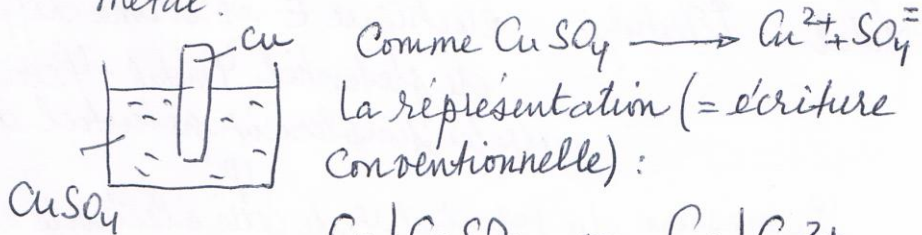 métal.
Cu
Comme CuSO4 ⟶ Cu²⁺ + SO4⁼
La réprésentation (= écriture
conventionnelle) :
CuSO4
Cu | CuSO Cu | Cu²⁺